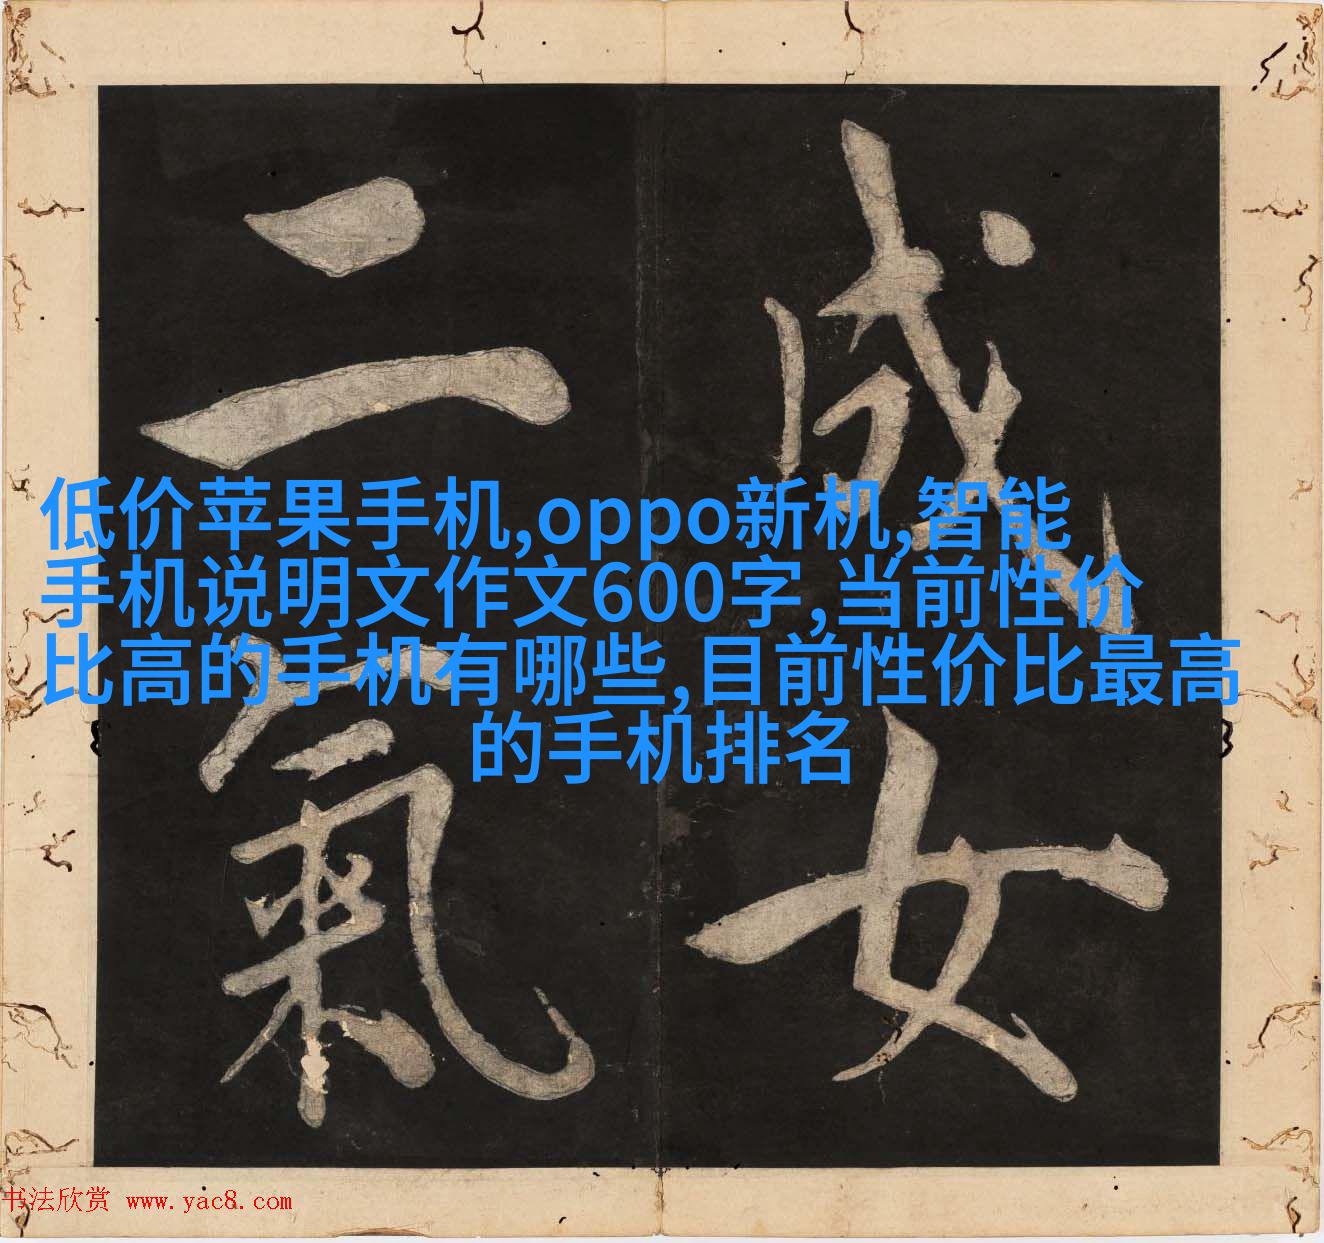 成女
二氣
低价苹果手机,oppo新机,智能
手机说明文作文600字,当前性价
比高的手机有哪些,目前性价比最高
的手机排名
书法欣赏 www.yac8.com